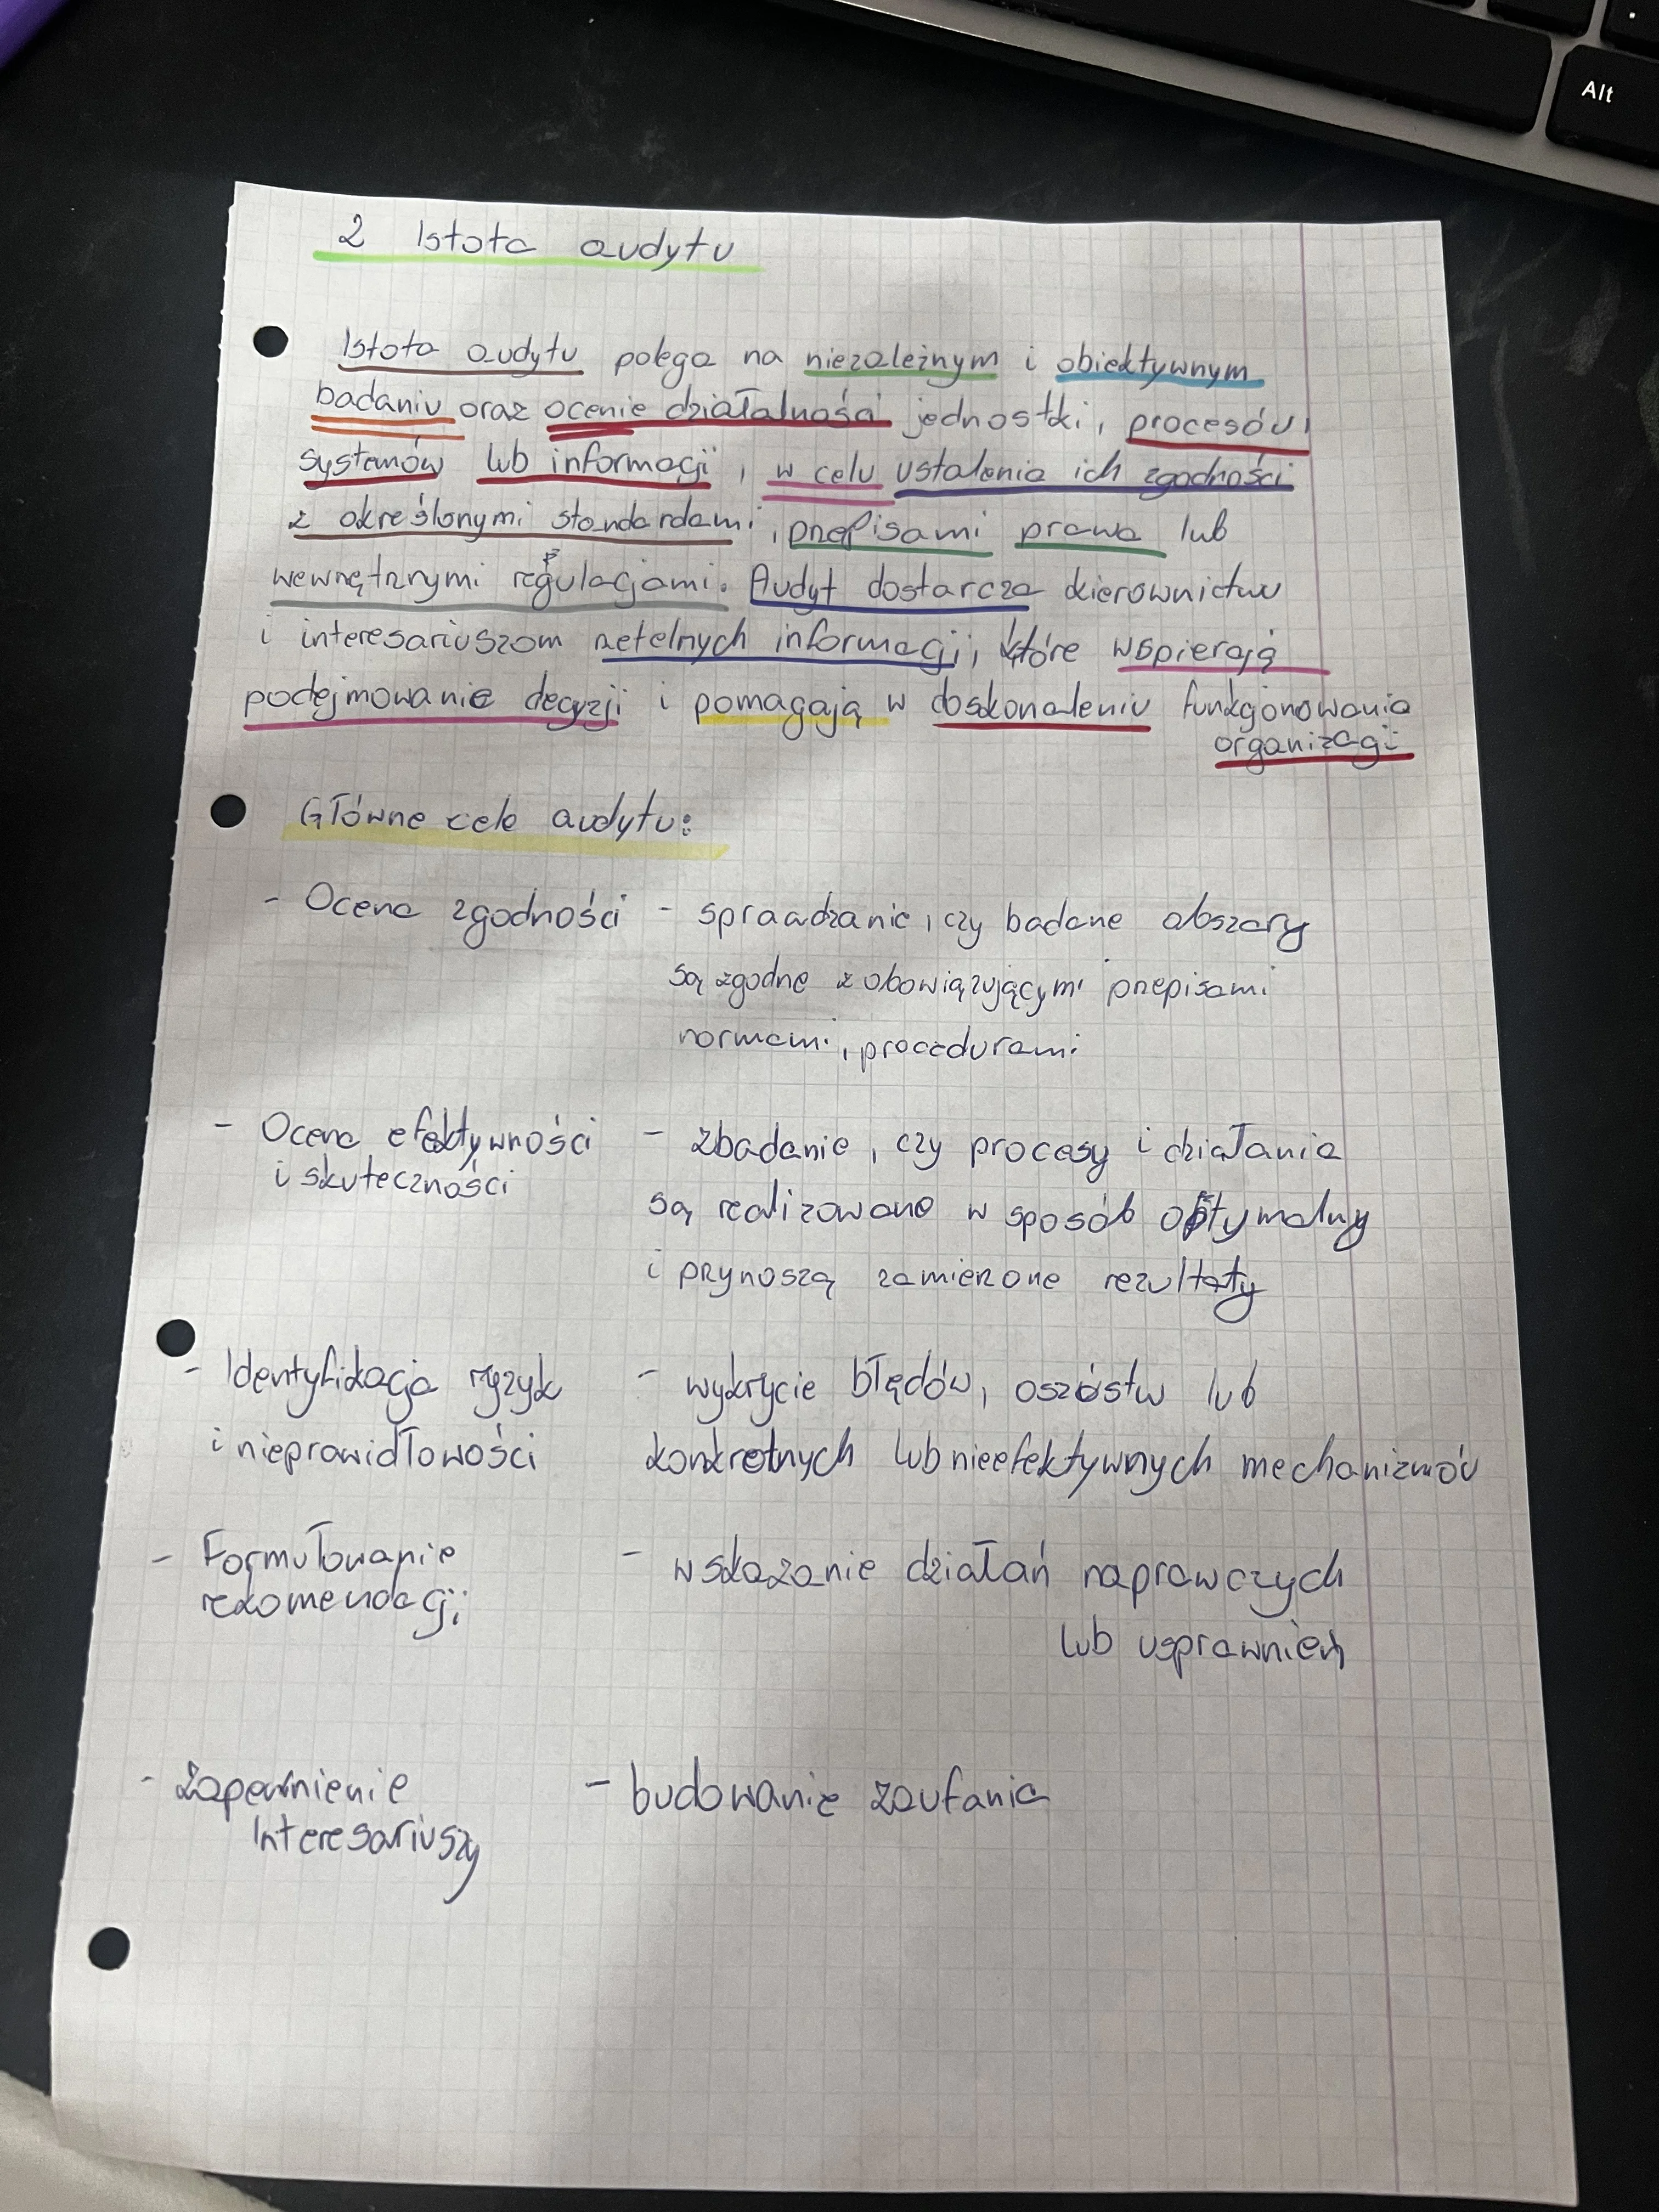 Alt
2 Istota audytu
Istota audytu polega na niezależnym i obiektywnym
badaniu oraz ocenie działalności jednostki, procesów,
systemów lub informacji, w celu ustalenia ich zgodności
z określonymi standardami, przepisami prawa lub
wewnętrznymi regulacjami. Audyt dostarcza kierownictwu
i interesariuszom rzetelnych informacji, które wspierają
podejmowanie decyzji i pomagają w doskonaleniu funkcjonowania
organizacji
Główne cele audytu:
- Ocena zgodności - sprawdzanie, czy badane obszary
są zgodne z obowiązującymi przepisami
normami, procedurami
- Ocena efektywności - zbadanie, czy procesy i działania
i skuteczności
są realizowane w sposób optymalny
i przynoszą zamierzone rezultaty
- Identyfikacja ryzyk - wykrycie błędów, oszustw lub
i nieprawidłowości konkretnych lub nieefektywnych mechanizmów
- Formułowanie - wskazanie działań naprawczych
rekomendacji
lub usprawnień
- Zapewnienie - budowanie zaufania
Interesariuszy